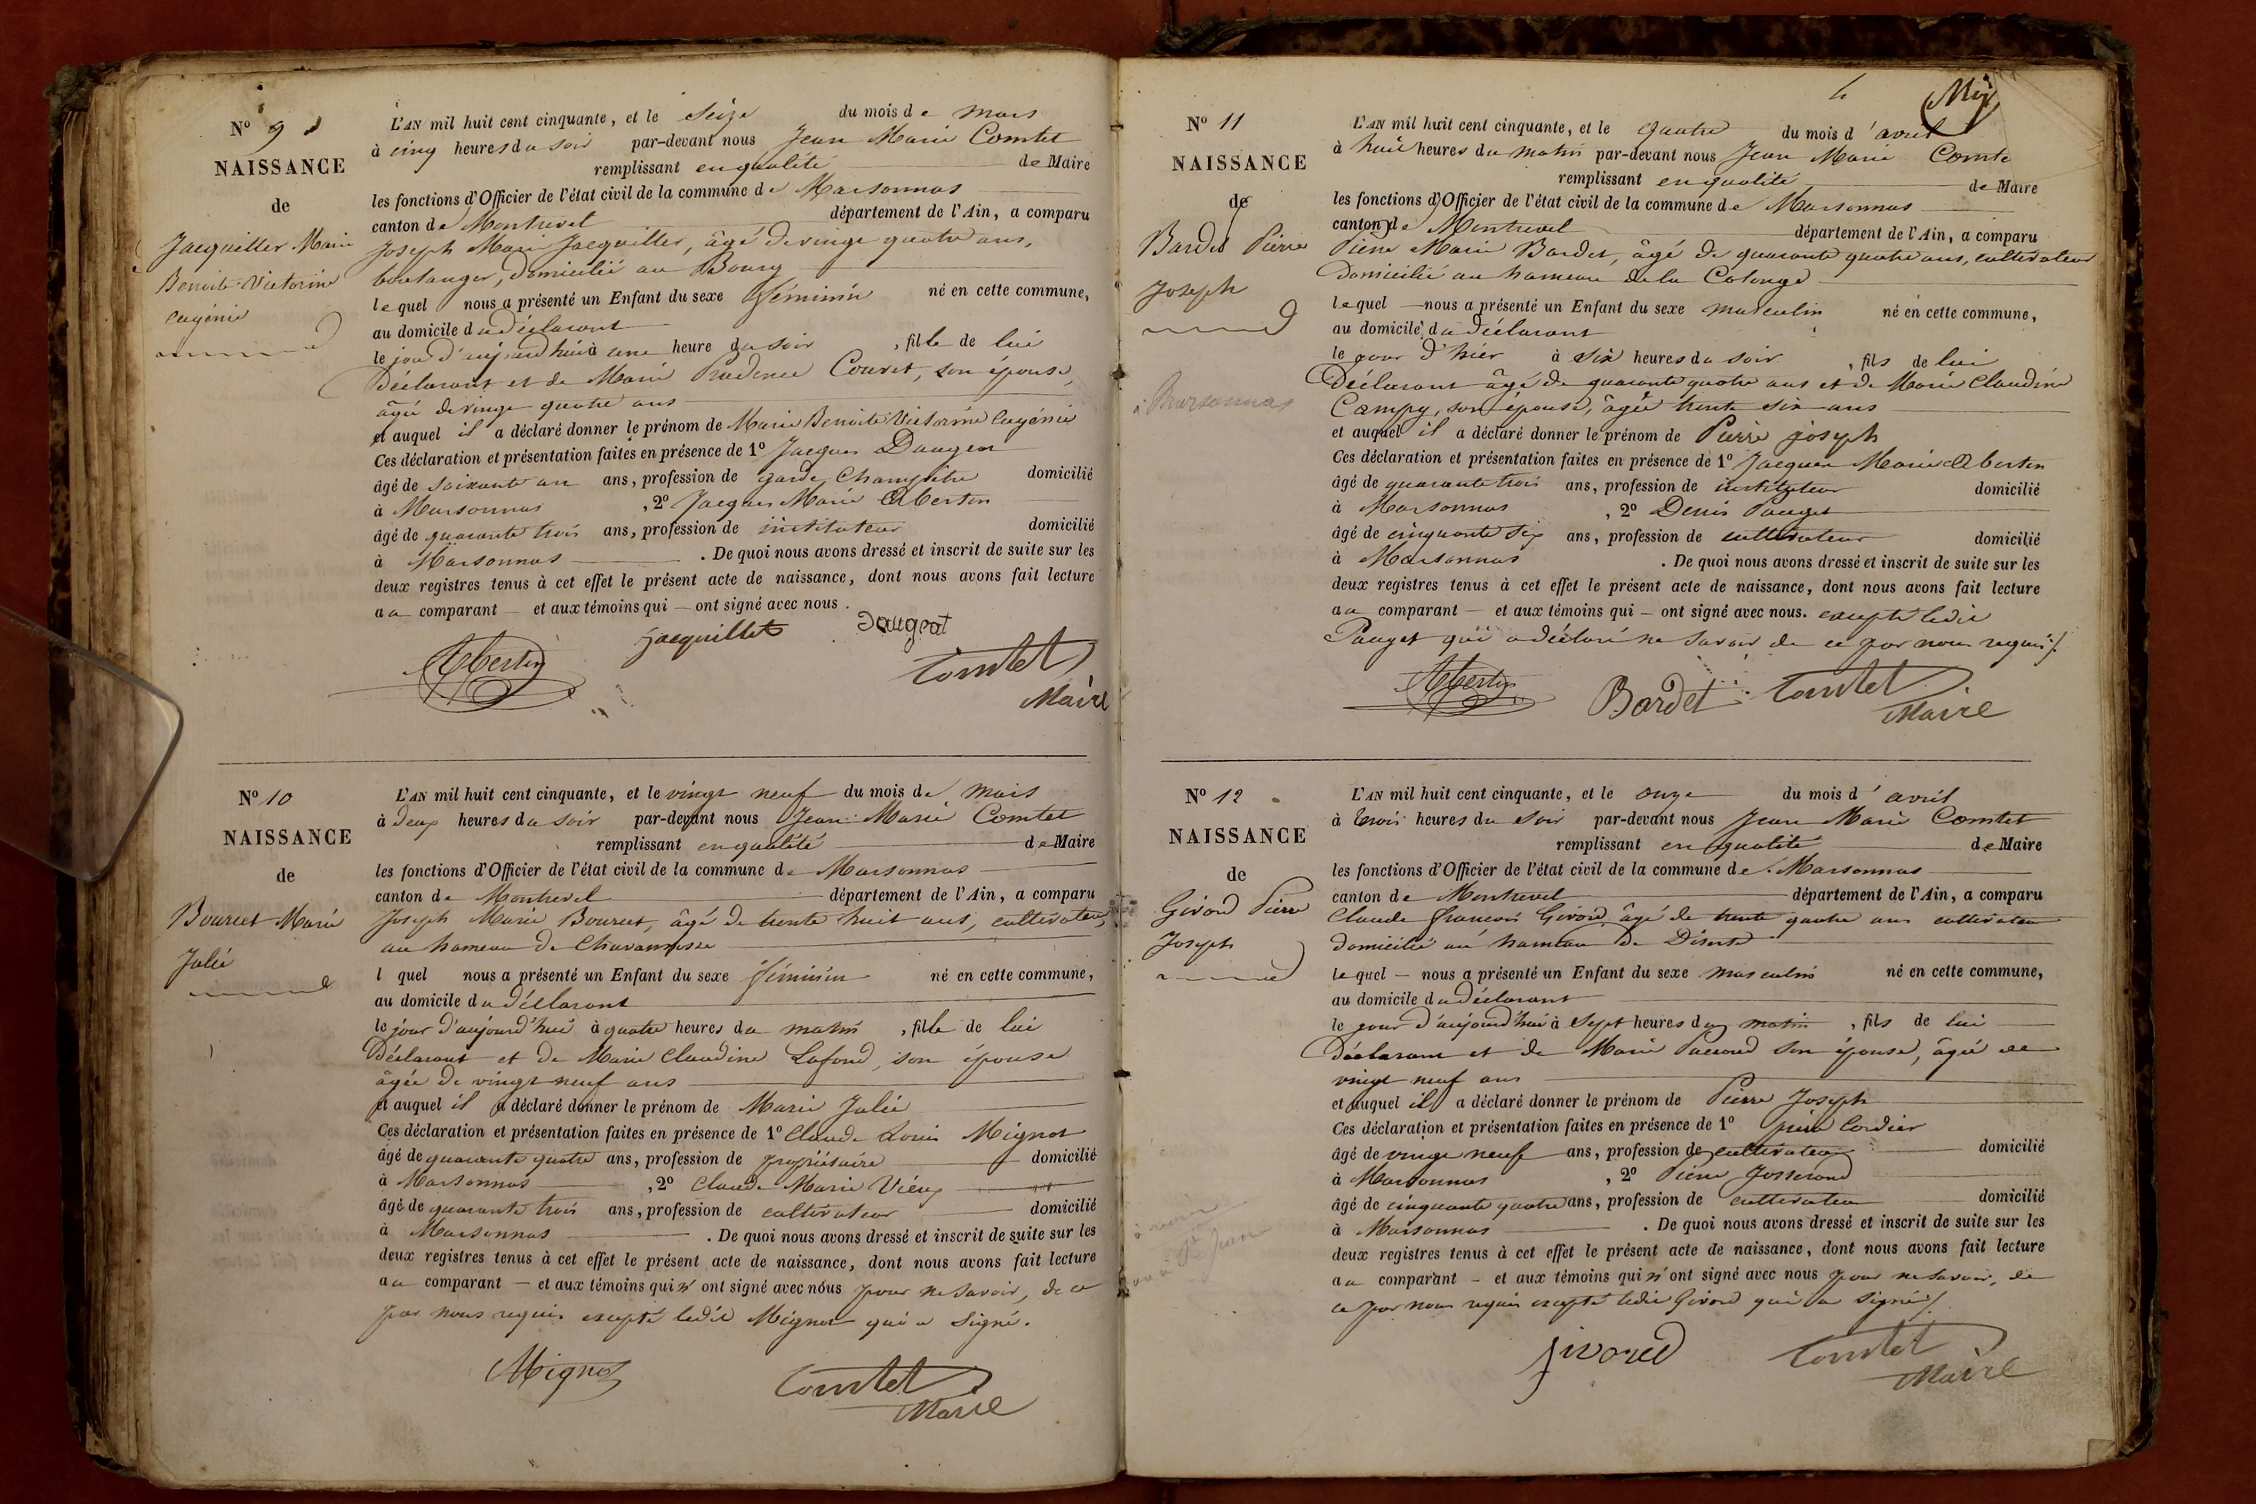 Nº 9
NAISSANCE
de
Jacquillet Marie
Benoite Victorine
Eugénie
L'AN mil huit cent cinquante, et le Seize du mois de mars
à cinq heures du soir par-devant nous Jean Marie Comtet
remplissant en qualité de Maire
les fonctions d'Officier de l'état civil de la commune de Marsonnas
canton de Montrevel département de l'Ain, a comparu
Joseph Marie Jacquillet, âgé de vingt quatre ans,
boulanger, domicilié au Bourg
lequel nous a présenté un Enfant du sexe féminin né en cette commune,
au domicile du déclarant
le jour d'aujourd'hui à une heure du soir, fille de lui
Déclarant et de Marie Prudence Couvet, son épouse,
âgée de vingt quatre ans
et auquel il a déclaré donner le prénom de Marie Benoite Victorine Eugénie
Ces déclaration et présentation faites en présence de 1º Jacques Daugeat
âgé de soixante un ans, profession de garde champêtre domicilié
à Marsonnas, 2º Jacques Marie Abertin
âgé de quarante trois ans, profession de instituteur domicilié
à Marsonnas. De quoi nous avons dressé et inscrit de suite sur les
deux registres tenus à cet effet le présent acte de naissance, dont nous avons fait lecture
au comparant — et aux témoins qui — ont signé avec nous.
Abertin Jacquillet Daugeat
Comtet
Maire
Nº 10
NAISSANCE
de
Bourcet Marie
Julie
L'AN mil huit cent cinquante, et le vingt neuf du mois de mars
à deux heures du soir par-devant nous Jean Marie Comtet
remplissant en qualité de Maire
les fonctions d'Officier de l'état civil de la commune de Marsonnas
canton de Montrevel département de l'Ain, a comparu
Joseph Marie Bourcet, âgé de trente huit ans, cultivateur,
au hameau de
l quel nous a présenté un Enfant du sexe féminin né en cette commune,
au domicile du déclarant
le jour d'aujourd'hui à quatre heures du matin, fille de lui
Déclarant et de Marie Claudine Lafond, son épouse
âgée de vingt neuf ans
et auquel il a déclaré donner le prénom de Marie Julie
Ces déclaration et présentation faites en présence de 1º Claude Louis Mignot
âgé de quarante quatre ans, profession de propriétaire domicilié
à Marsonnas, 2º Claude Marie Vieux
âgé de quarante trois ans, profession de cultivateur domicilié
à Marsonnas. De quoi nous avons dressé et inscrit de suite sur les
deux registres tenus à cet effet le présent acte de naissance, dont nous avons fait lecture
au comparant — et aux témoins qui n'ont signé avec nous pour ne savoir, de ce
par nous requis excepté ledit Mignot qui a signé.
Mignot Comtet
Maire
4
Nº 11
NAISSANCE
de
Bardet Pierre
Joseph
à Marsonnas
L'AN mil huit cent cinquante, et le quatre du mois d'avril
à huit heures du matin par-devant nous Jean Marie Comte
remplissant en qualité de Maire
les fonctions d'Officier de l'état civil de la commune de Marsonnas
canton de Montrevel département de l'Ain, a comparu
Pierre Marie Bardet, âgé de quarante quatre ans, cultivateur
Domicilié au hameau de la Colonge
lequel — nous a présenté un Enfant du sexe masculin né en cette commune,
au domicile du déclarant
le jour d'hier à six heures du soir, fils de lui
Déclarant âgé de quarante quatre ans et de Marie Claudine
Campy, son épouse, âgée trente six ans
et auquel il a déclaré donner le prénom de Pierre joseph
Ces déclaration et présentation faites en présence de 1º Jacques Marie Abertin
âgé de quarante trois ans, profession de instituteur domicilié
à Marsonnas, 2º Denis Pauget
âgé de cinquante six ans, profession de cultivateur domicilié
à Marsonnas. De quoi nous avons dressé et inscrit de suite sur les
deux registres tenus à cet effet le présent acte de naissance, dont nous avons fait lecture
au comparant — et aux témoins qui — ont signé avec nous. excepté ledit
Pauget qui a déclaré ne savoir de ce par nous requis
Abertin Bardet Comtet
Maire
Nº 12
NAISSANCE
de
Givord Pierre
Joseph
L'AN mil huit cent cinquante, et le onze du mois d'avril
à trois heures du soir par-devant nous Jean Marie Comtet
remplissant en qualité de Maire
les fonctions d'Officier de l'état civil de la commune de Marsonnas
canton de Montrevel département de l'Ain, a comparu
Claude françois Givord, âgé de trente quatre ans cultivateur
domicilié au hameau de
lequel — nous a présenté un Enfant du sexe masculin né en cette commune,
au domicile du déclarant
le jour d'aujourd'hui à sept heures du matin, fils de lui
Déclarant et de Marie son épouse, âgée de
vingt neuf ans
et auquel il a déclaré donner le prénom de Pierre Joseph
Ces déclaration et présentation faites en présence de 1º pierre Cordier
âgé de vingt neuf ans, profession de cultivateur domicilié
à Marsonnas, 2º Pierre Josserand
âgé de cinquante quatre ans, profession de cultivateur domicilié
à Marsonnas. De quoi nous avons dressé et inscrit de suite sur les
deux registres tenus à cet effet le présent acte de naissance, dont nous avons fait lecture
au comparant — et aux témoins qui n'ont signé avec nous pour ne savoir, de
ce par nous requis excepté ledit Givord qui a signé
Givord Comtet
Maire